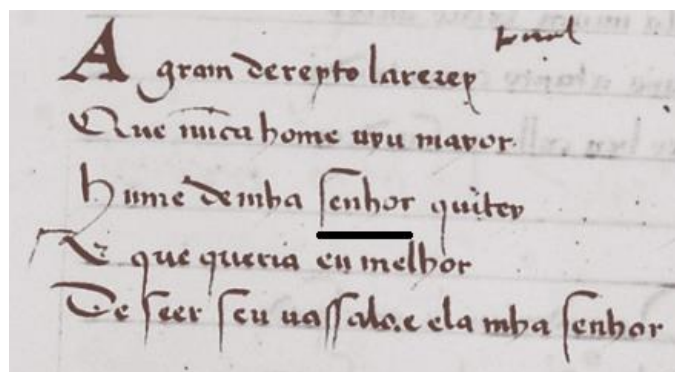 A gram dereyto lazerey
Que nũca home uyu mayor
Hume demha senhor quitey
E que queria eu melhor
De seer seu uassalo.e ela mha senhor